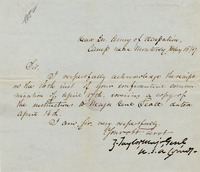 Head Qrs. Army of Occupation,
Camp near Monterey, May 1847
Sir,
I respectfully acknowledge the receipt
on the 10th inst. of your confidential commu-
nication of April , covering a copy of
the instructions to Major Genl. Scott dated
April
I am Sir very respectfully
Your obt. servt.
Z. Taylor Maj. Genl.
U.S. Army